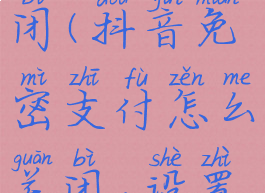 闭(抖音免
mì zhī fù zěn me
密支付怎么
guān bì shè zhì
关闭、设置